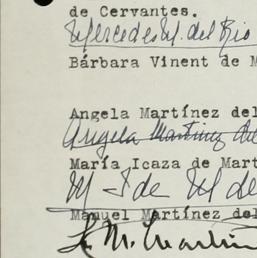 de Cervantes.
Mercedes M. del Rio
Bárbara Vinent de M
Angela Martínez del
Angela Martinez del
María Icaza de Mart
M I de M de
Manuel Martínez del
M. Martin